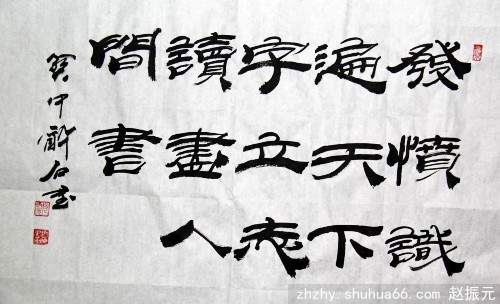 發憤識
遍天下
字立志
讀盡人
間書
zhzhy.shuhua66.com 赵振元